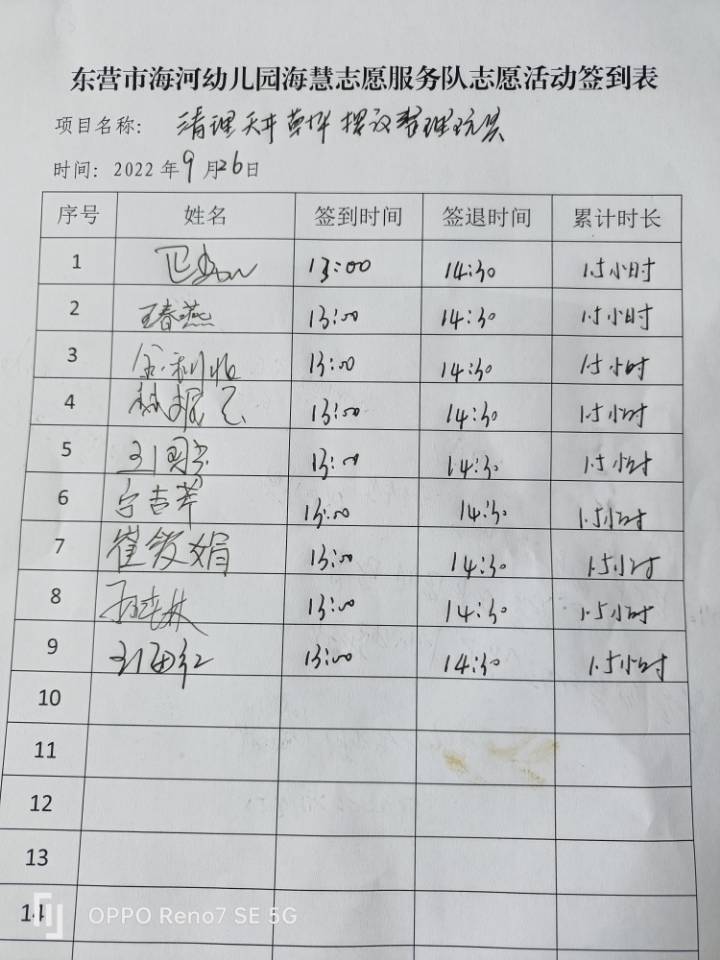 东营市海河幼儿园海慧志愿服务队志愿活动签到表
项目名称: 清理天井 整理玩具
时间: 2022年9月26日
序号 姓名 签到时间 签退时间 累计时长
1 13:00 14:30 1.5小时
2 王春燕 13:00 14:30 1.5小时
3 13:00 14:30 1.5小时
4 13:00 14:30 1.5小时
5 13:00 14:30 1.5小时
6 13:00 14:30 1.5小时
7 崔筱娟 13:00 14:30 1.5小时
8 13:00 14:30 1.5小时
9 13:00 14:30 1.5小时
10
11
12
13
14
OPPO Reno7 SE 5G